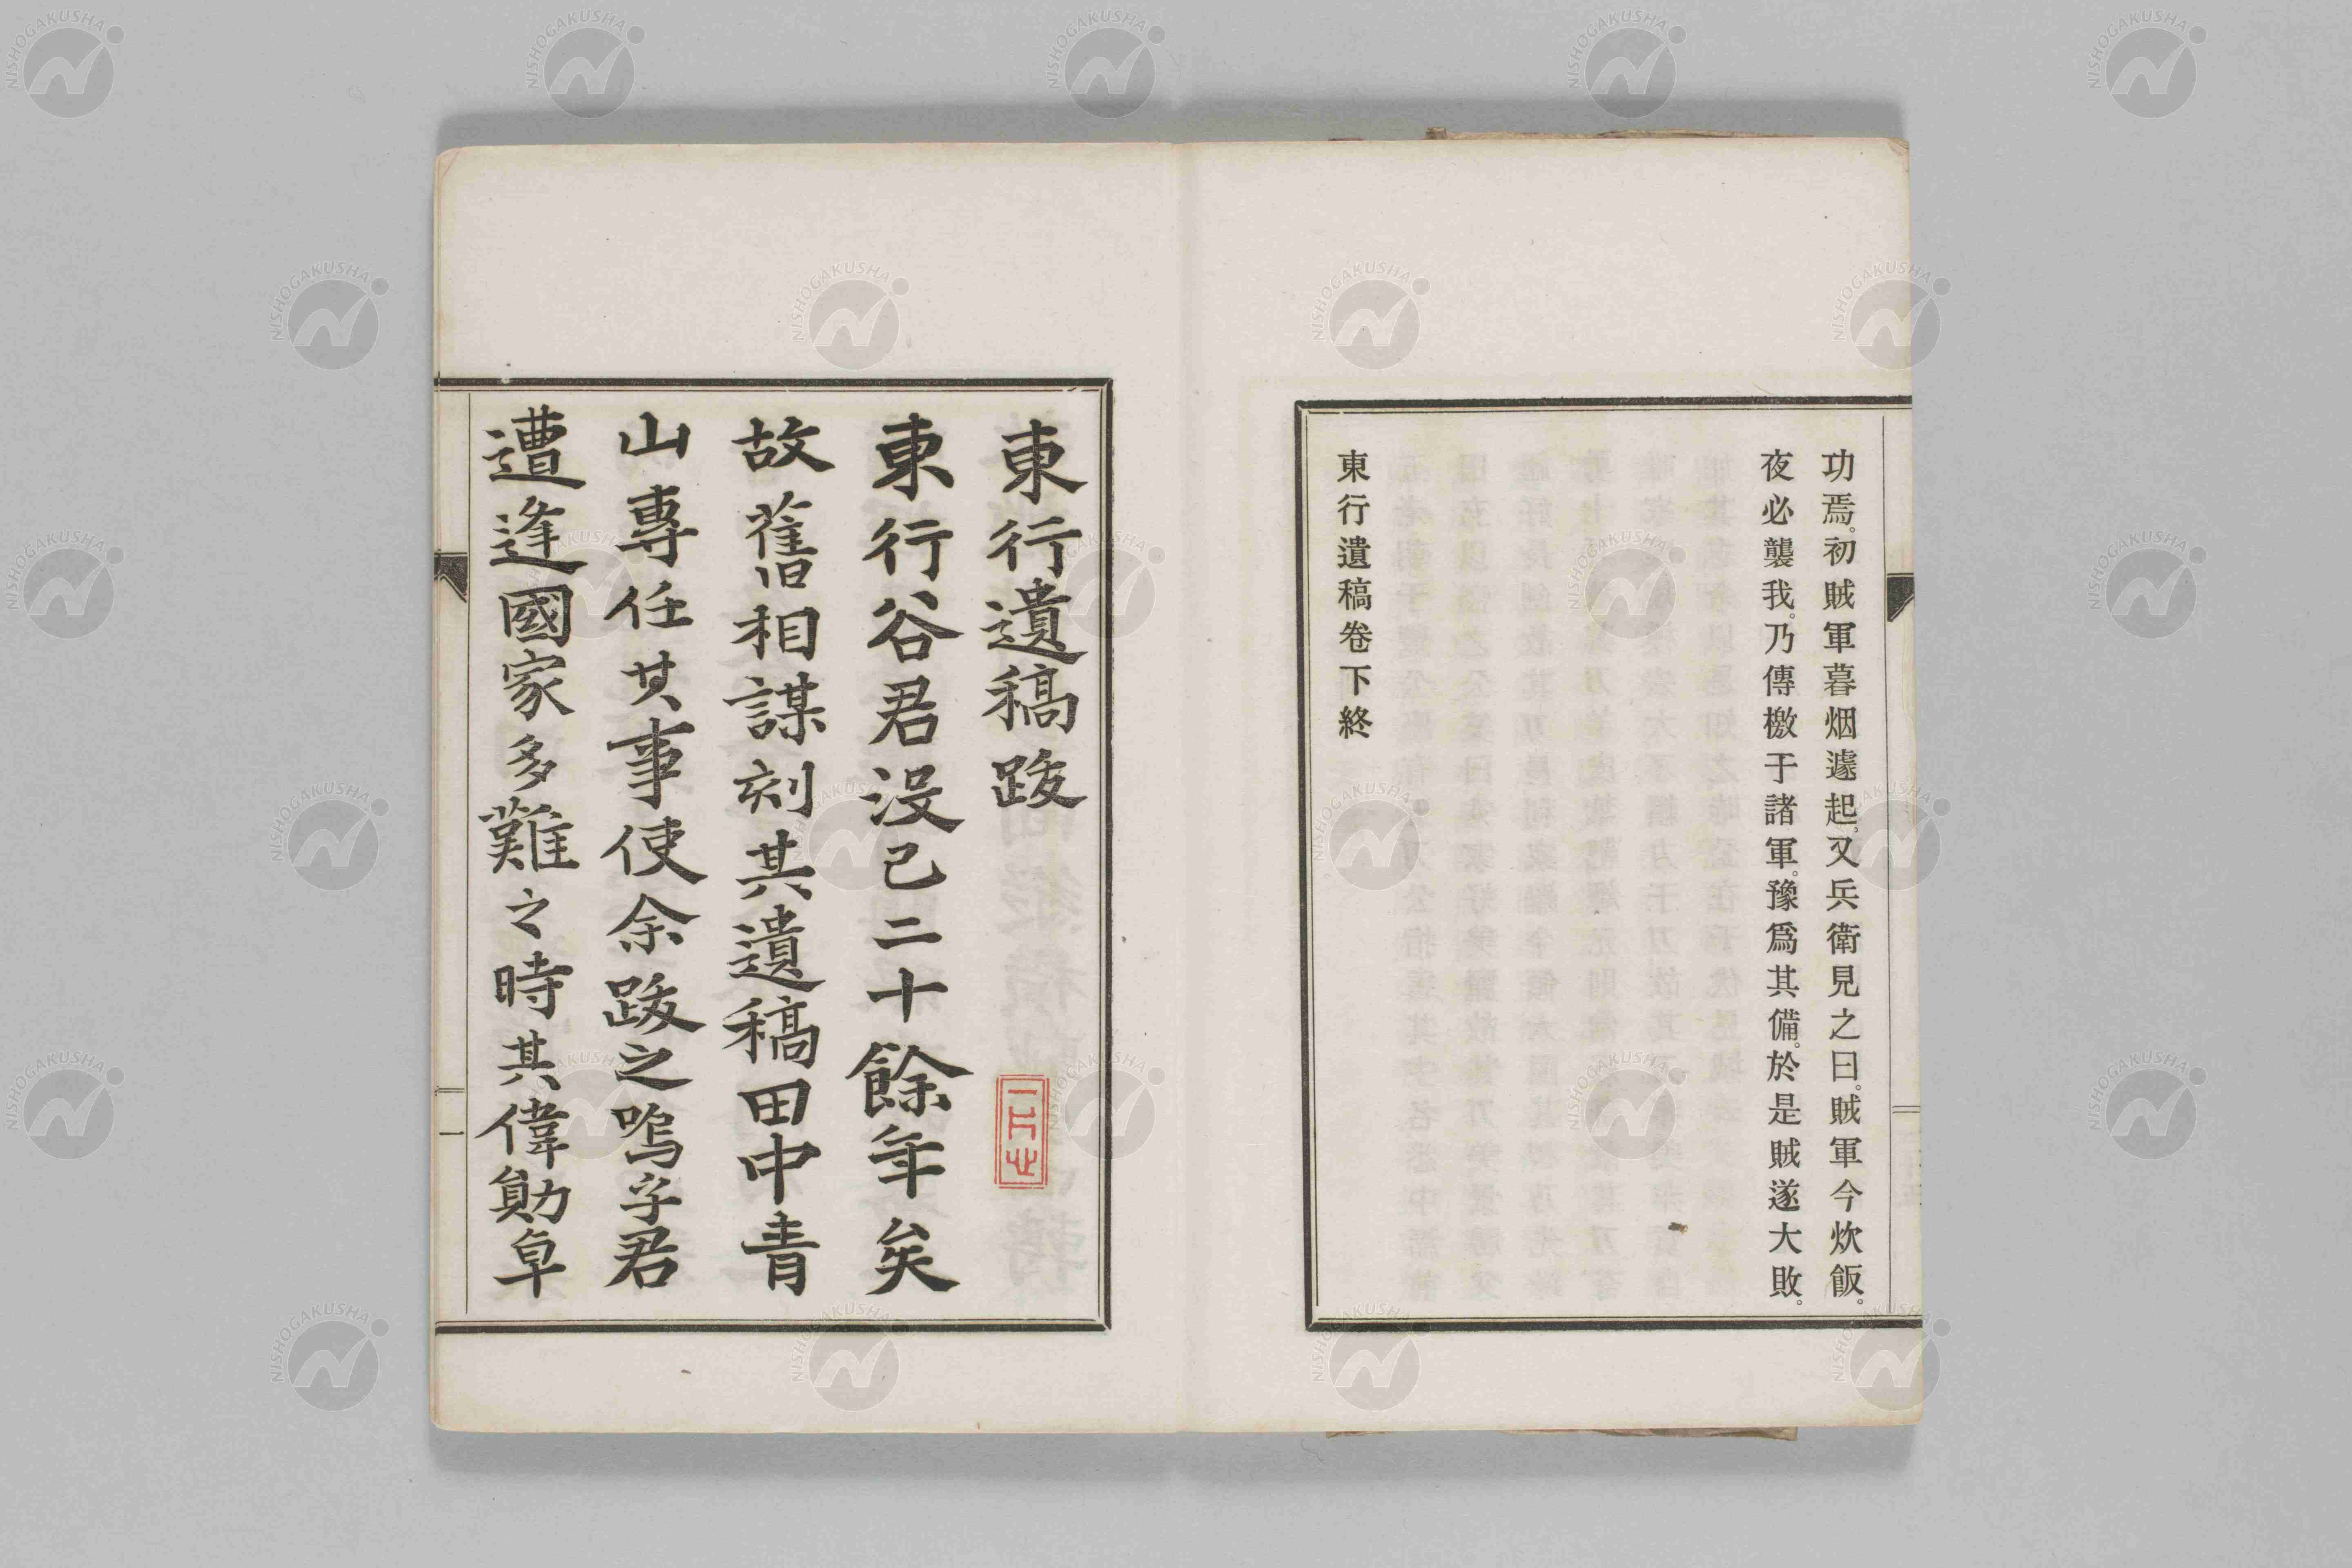 功焉。初賊軍暮烟遽起。又兵衛見之曰。賊軍今炊飯。
夜必襲我。乃傳檄于諸軍。豫爲其備。於是賊遂大敗。
東行遺稿卷下終
東行遺稿跋
東行谷君没已二十餘年矣
故舊相謀刻其遺稿田中青
山專任其事使余跋之嗚乎君
遭逢國家多難之時其偉勛卓
一
NISHOGAKUSHA